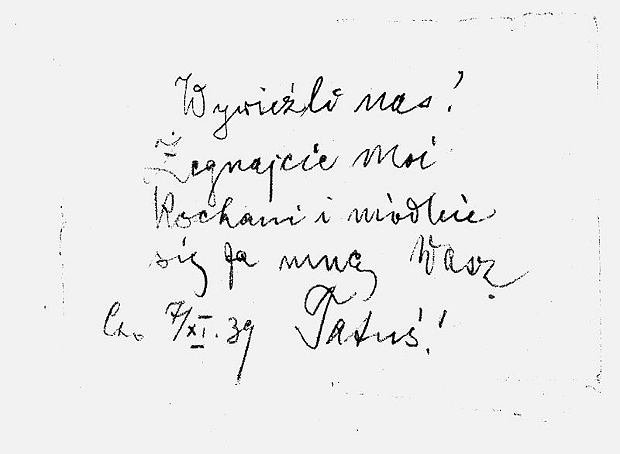 Wywieźli nas!
Żegnajcie Moi
Kochani i módlcie
się za mną Wasz
7/XI.39 Tatuś!